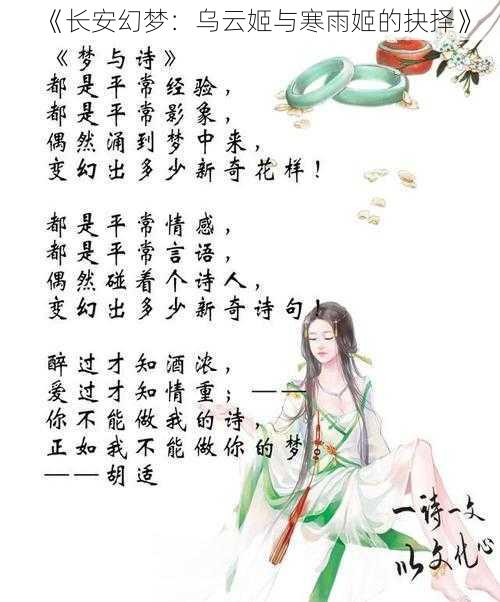 《长安幻梦：乌云姬与寒雨姬的抉择》
《梦与诗》
都是平常经验，
都是平常影象，
偶然涌到梦中来，
变幻出多少新奇花样！
都是平常情感，
都是平常言语，
偶然碰着个诗人，
变幻出多少新奇诗句！
醉过才知酒浓，
爱过才知情重；——
你不能做我的诗，
正如我不能做你的梦
——胡适
一诗一文
以文化心